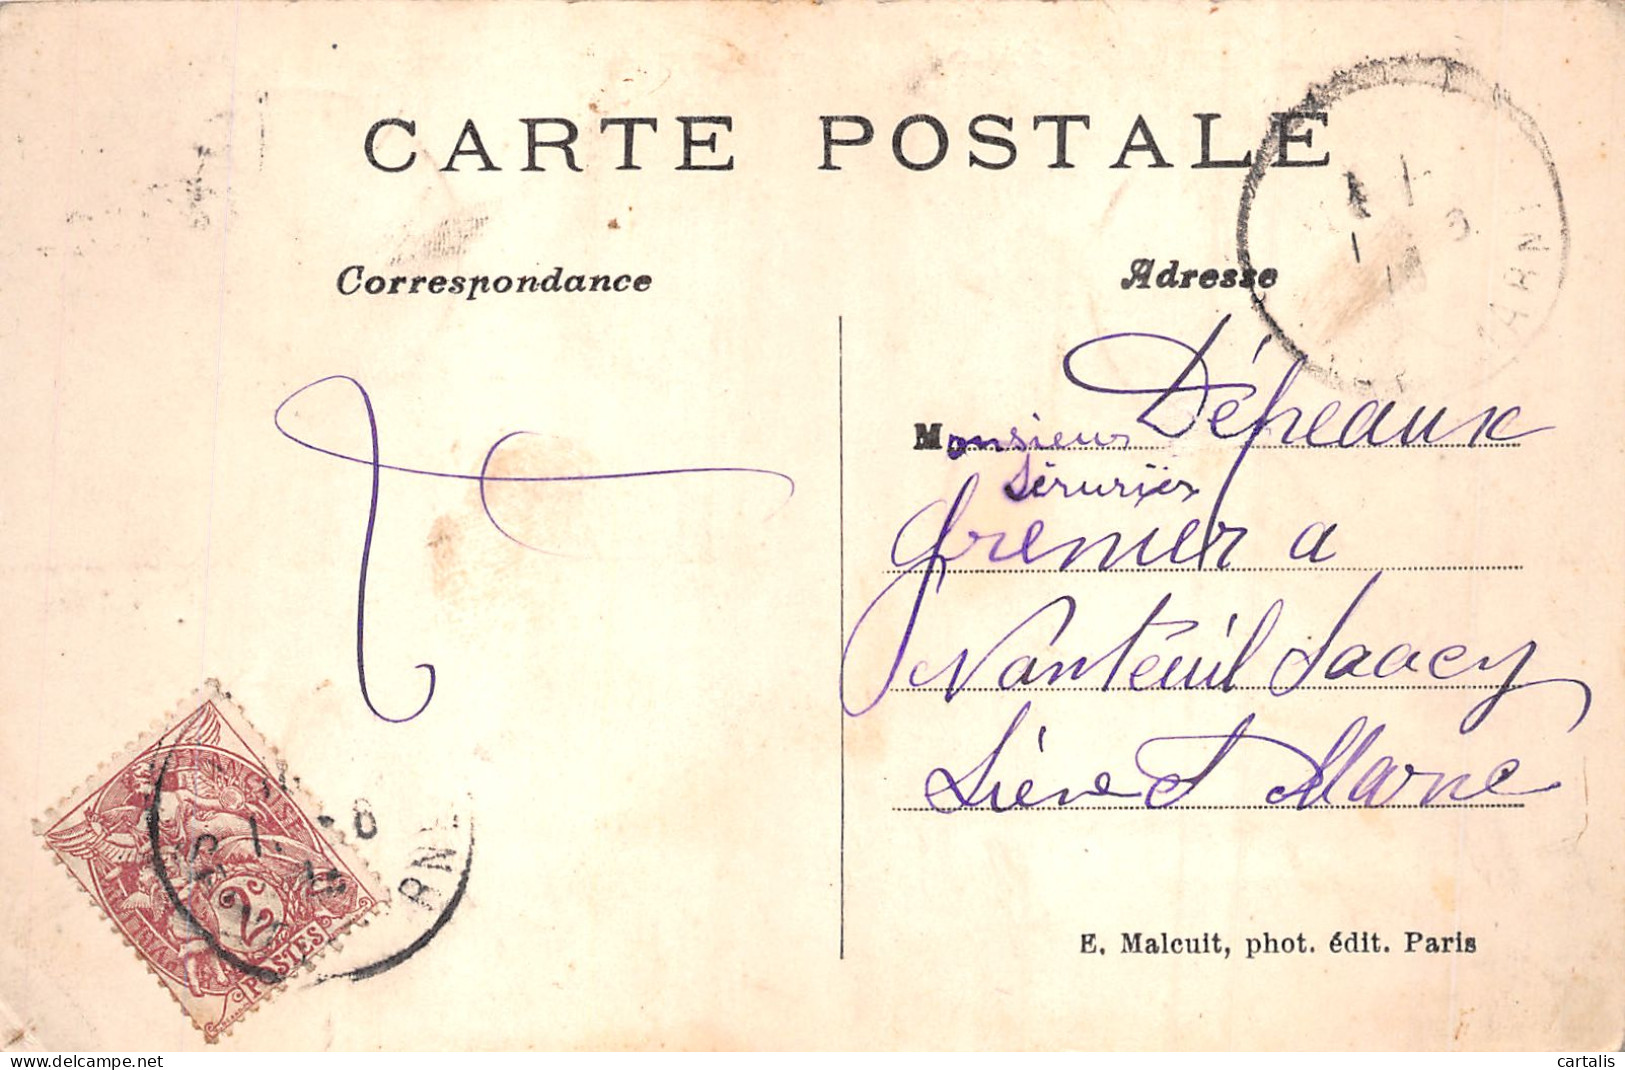 CARTE POSTALE
Correspondance
Adresse
Monsieur Dépeaux
Sérurier
Grenier a
Nanteuil Saacy
Seine et Marne
E. Malcuit, phot. édit. Paris
FRANÇAISE
2
POSTES
RNE
MARNE
cartalis